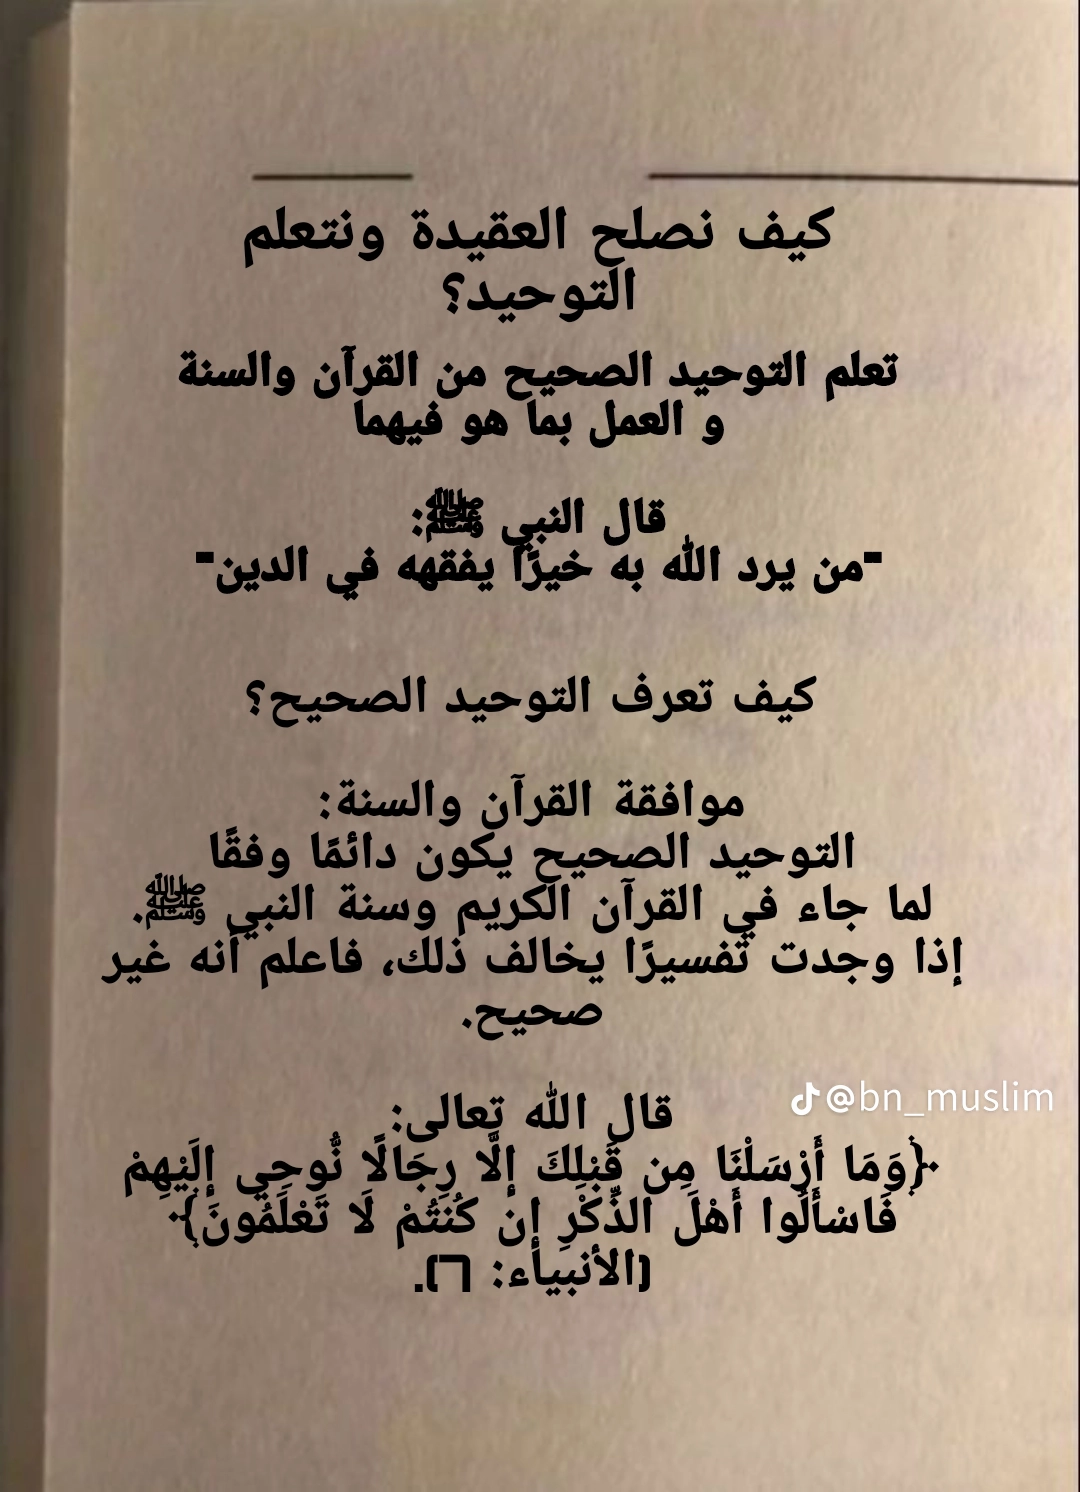 كيف نصلح العقيدة ونتعلم
التوحيد؟
تعلم التوحيد الصحيح من القرآن والسنة
و العمل بما هو فيهما
قال النبي ﷺ:
"من يرد الله به خيرًا يفقهه في الدين"
كيف تعرف التوحيد الصحيح؟
موافقة القرآن والسنة:
التوحيد الصحيح يكون دائمًا وفقًا
لما جاء في القرآن الكريم وسنة النبي ﷺ.
إذا وجدت تفسيرًا يخالف ذلك، فاعلم أنه غير
صحيح.
@bn_muslim
قال الله تعالى:
﴿وَمَا أَرْسَلْنَا مِن قَبْلِكَ إلَّا رِجَالًا نُّوحِي إلَيْهِمْ
فَاسْأَلُوا أَهْلَ الذِّكْرِ إن كُنتُمْ لَا تَعْلَمُونَ﴾
(الأنبياء: ٦).